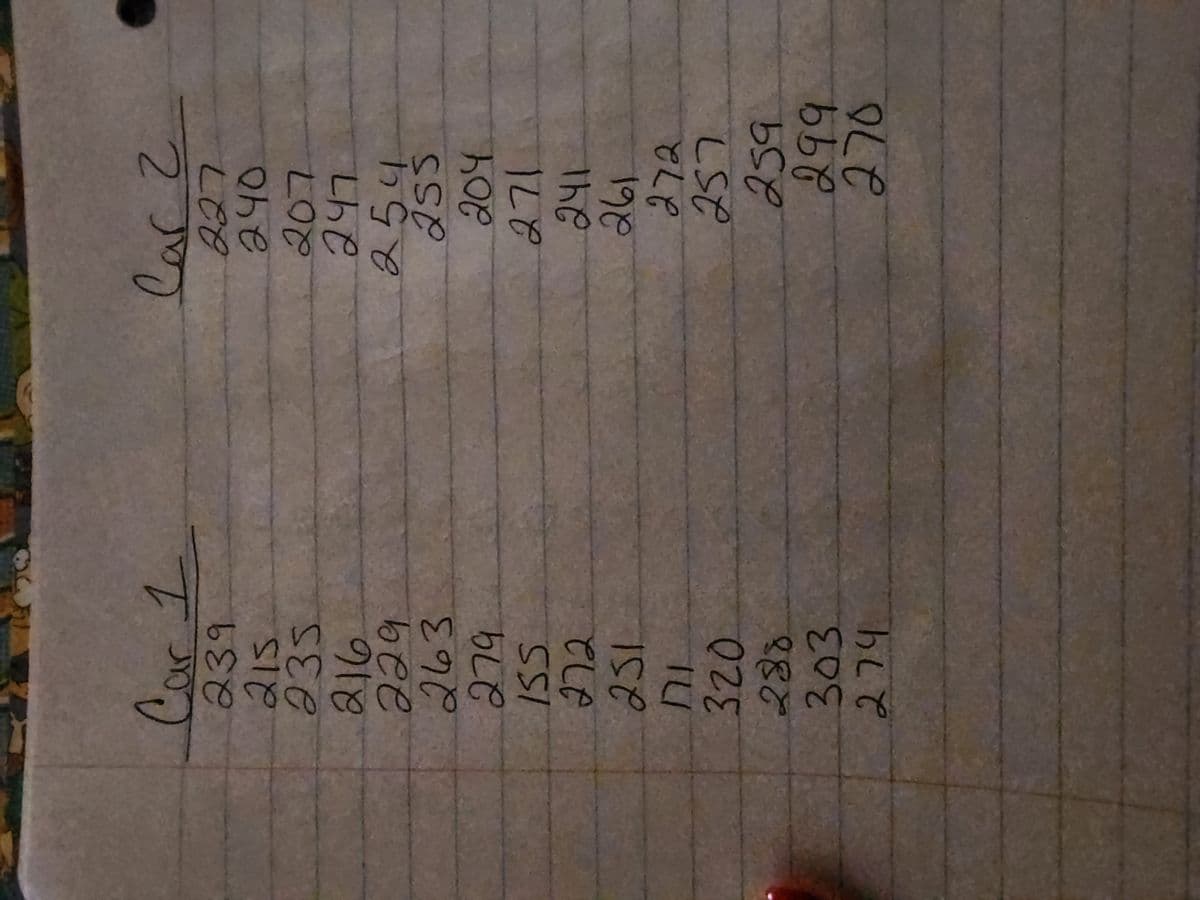 Car 1 Car 2
239 227
215 240
235 207
216 247
229 254
263 255
279 204
155 271
272 241
251 261
171 272
320 257
288 259
303 299
274 270